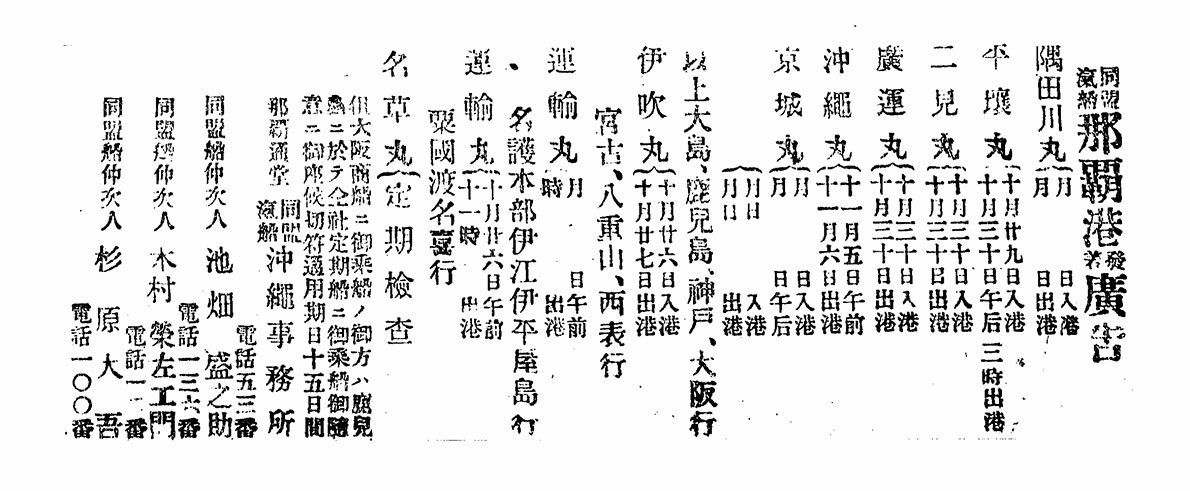 同盟滊船那覇港發着廣告
隅田川丸 月 日入港 月 日出港
平壤丸 十月廿九日入港 十月三十日午后三時出港
二見丸 十月三十日入港 十月三十日出港
廣運丸 十月三十日入港 十月三十日出港
沖繩丸 十一月五日午前入港 十一月六日出港
京城丸 月 日午后 月 日
月日 入港 月日 出港
以上大島、鹿兒島、神戸、大阪行
伊吹丸 十月廿六日入港 十月廿七日出港
宮古、八重山、西表行
運輸丸 月 日午前 時 出港
名護本部伊江伊平屋島行
運輸丸 十月廿六日午前 十一時 出港
粟國渡名喜行
名草丸 定期檢査
但大阪商船ニ御乘船ノ御方ハ鹿兒
島ニ於テ仝社定期船ニ御乘船御隨
意ニ御座候切符通用期日十五日間
那覇通堂 同盟滊船 沖繩事務所
電話五三番
同盟船仲次人 池畑盛之助
電話一三六番
同盟船仲次人 木村榮左工門
電話一一番
同盟船仲次人 杉原大吾
電話一〇〇番